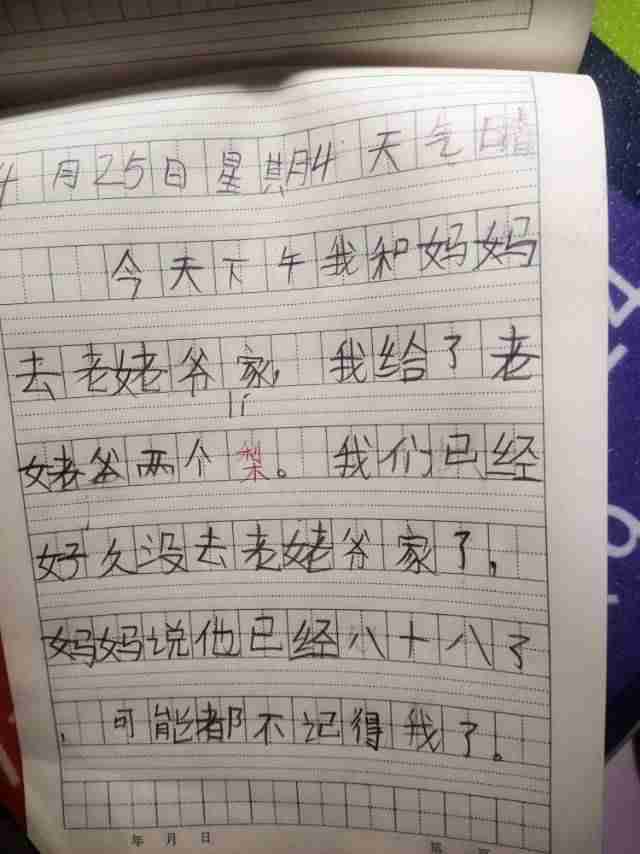 4月25日星期4天气晴
今天下午我和妈妈
去老姥爷家，我给了老
lí
姥爷两个梨。我们已经
好久没去老姥爷家了，
妈妈说他已经八十八了
，可能都不记得我了。
年 月 日 第 页